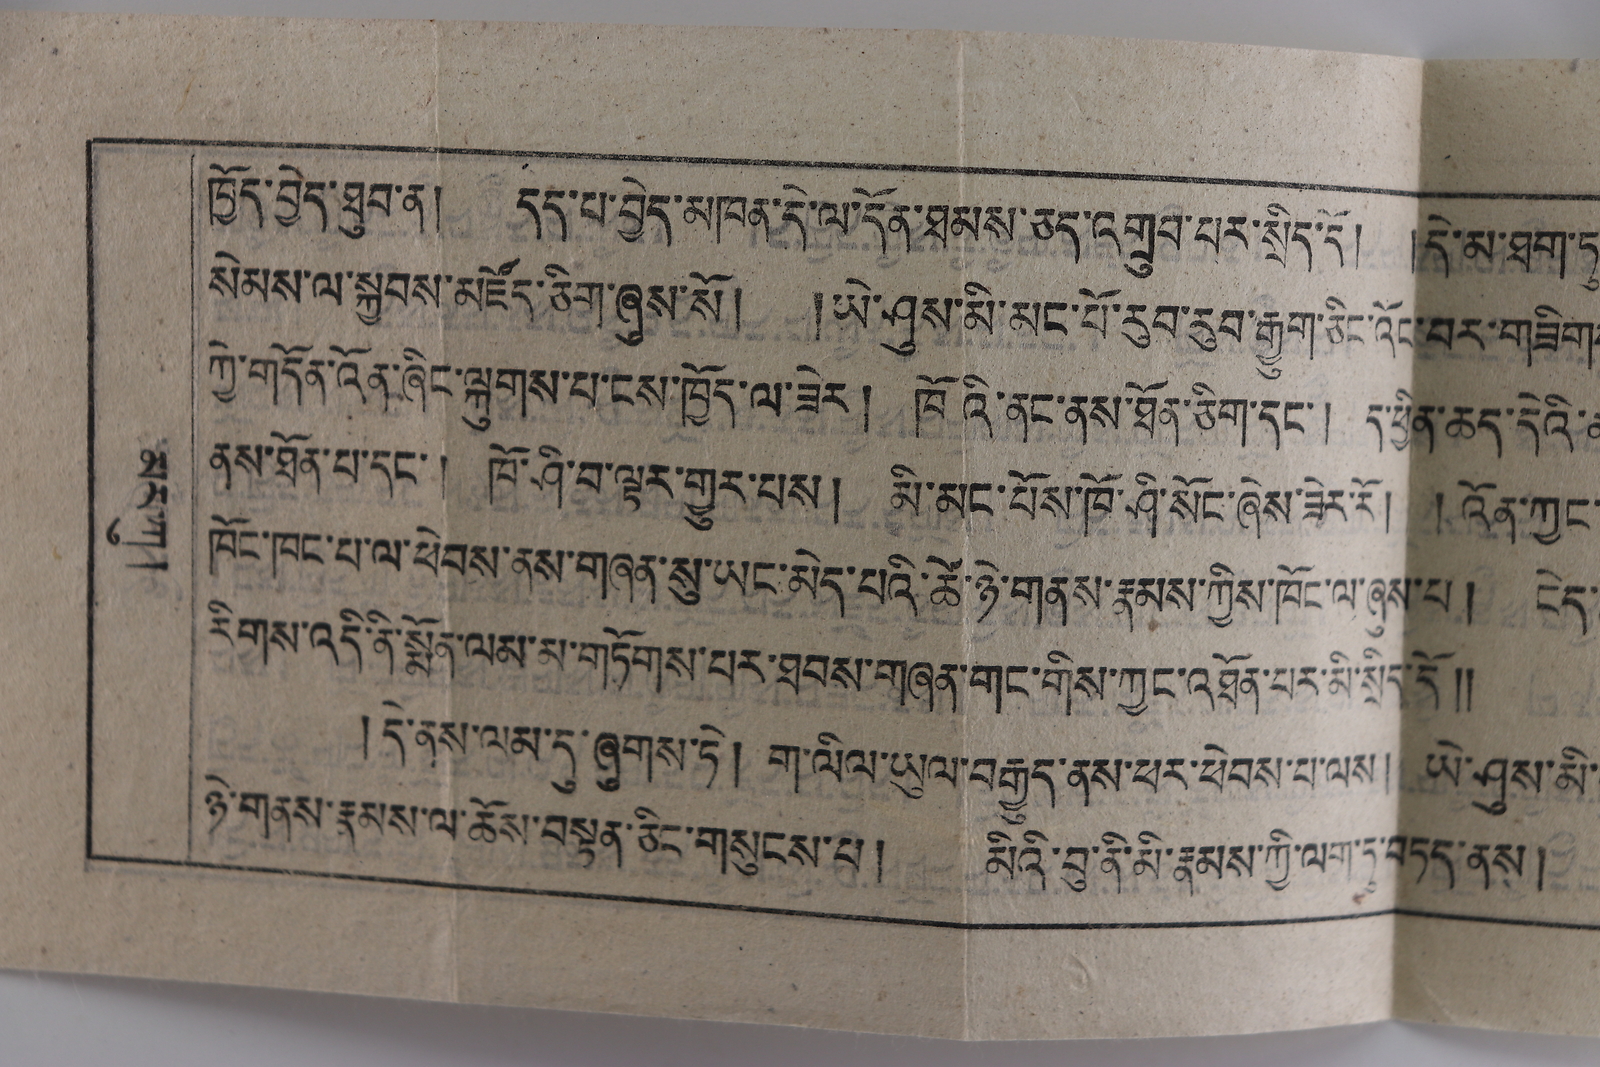 ཁྱོད་བྱེད་ཐུབ་ན། དད་པ་བྱེད་མཁན་དེ་ལ་དོན་ཐམས་ཅད་འགྲུབ་པར་སྲིད་དོ། །དེ་མ་ཐག་ཏུ
སེམས་ལ་སྐྱབས་མཛོད་ཅིག་ཞུས་སོ། །ཡེ་ཤུས་མི་མང་པོ་རུབ་རུབ་རྒྱུག་ཅིང་འོང་བར་གཟིགས
ཀྱེ་གདོན་འོན་ཞིང་ལྐུགས་པ་ངས་ཁྱོད་ལ་ཟེར། ཁོ་འི་ནང་ནས་ཐོན་ཅིག་དང་། ད་ཕྱིན་ཆད་དེའི་
ནས་ཐོན་པ་དང་། ཁོ་ཤི་བ་ལྟར་གྱུར་པས། མི་མང་པོས་ཁོ་ཤི་སོང་ཞེས་ཟེར་རོ། །འོན་ཀྱང་
ཁོང་ཁང་པ་ལ་ཕེབས་ནས་གཞན་སུ་ཡང་མེད་པའི་ཚེ་ཉེ་གནས་རྣམས་ཀྱིས་ཁོང་ལ་ཞུས་པ། ངེད་
རིགས་འདི་ནི་སྨོན་ལམ་མ་གཏོགས་པར་ཐབས་གཞན་གང་གིས་ཀྱང་འཐོན་པར་མི་སྲིད་དོ༎
།དེ་ནས་ལམ་དུ་ཞུགས་ཏེ། ག་ལིལ་ཡུལ་བརྒྱུད་ནས་ཕར་ཕེབས་པ་ལས། ཡེ་ཤུས་མི་
ཉེ་གནས་རྣམས་ལ་ཆོས་བསྟན་ཅིང་གསུངས་པ། མིའི་བུ་ནི་མི་རྣམས་ཀྱི་ལག་ཏུ་བཏད་ནས།